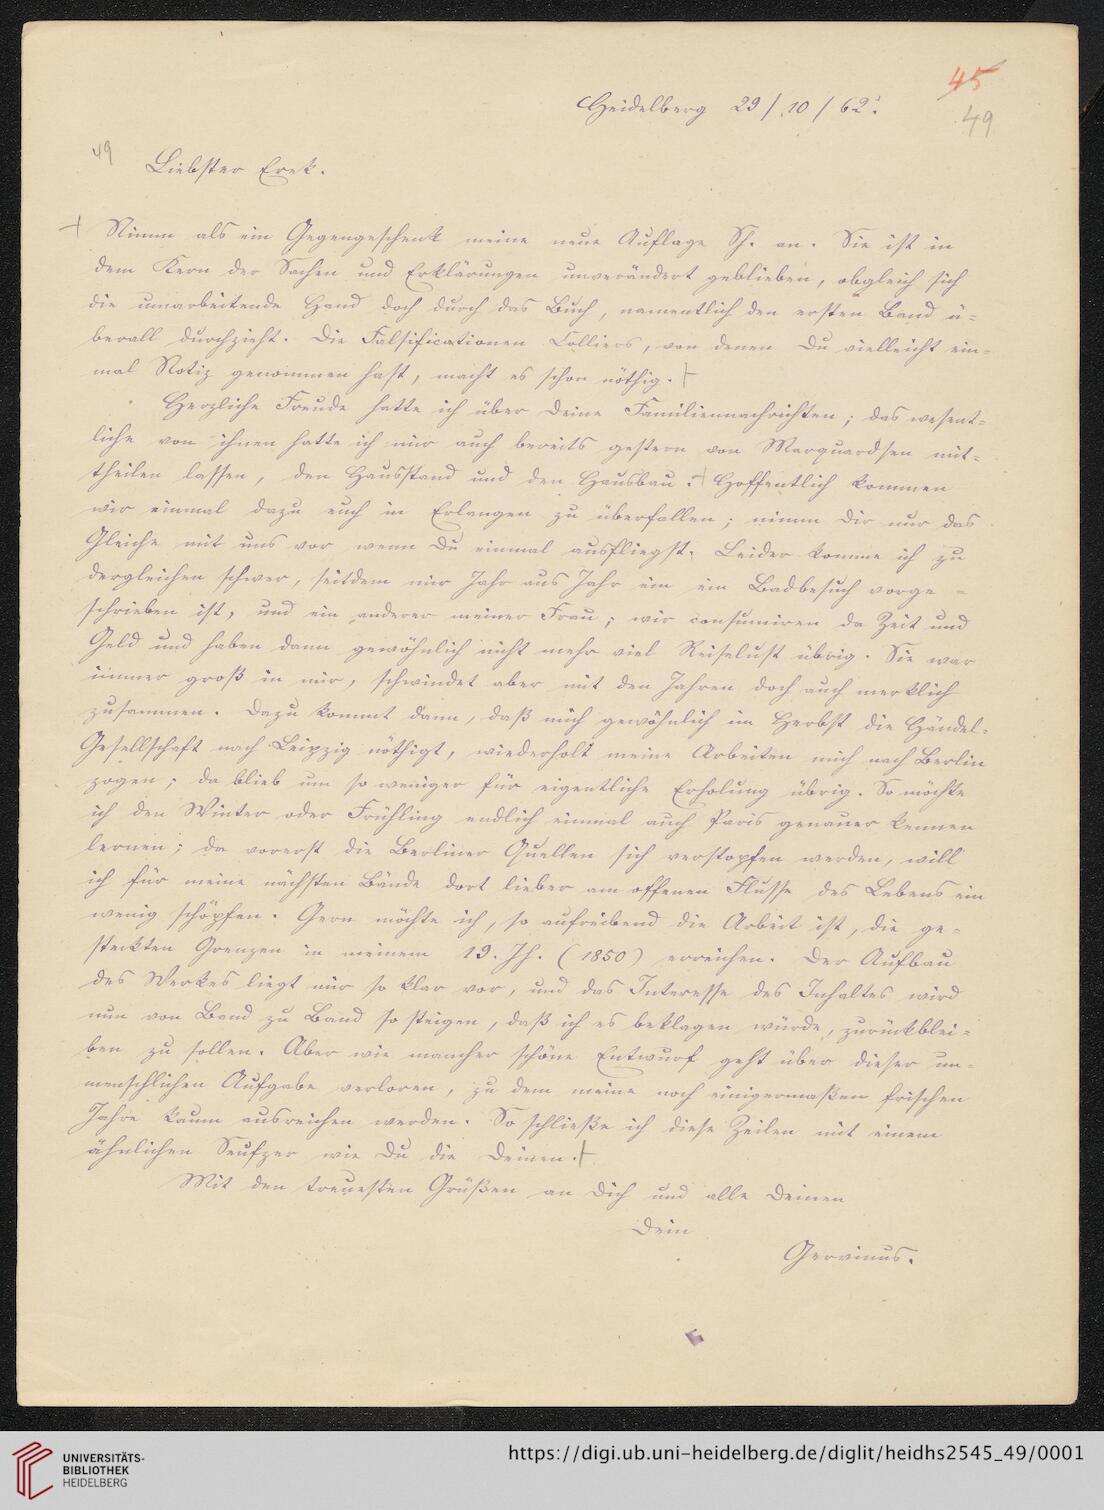 45
Heidelberg 29/10/62.
49
49
Liebster Freund.
Nimm als ein Gegengeschenk meine neue Auflage Sh. an. Sie ist in
dem Kern der Sachen und Erklärungen unverändert geblieben, obgleich sich
die umarbeitende Hand doch durch das Buch, namentlich den ersten Band ü-
berall durchzieht. Die Falsificationen Colliers, von denen Du vielleicht ein-
mal Notiz genommen hast, macht es schon nöthig.
Herzliche Freude hatte ich über Deine Familiennachrichten; das wesent-
liche von ihnen hatte ich mir auch bereits gestern von Marquardsen mit-
theilen lassen, den Hausstand und den Hausbau. Hoffentlich kommen
wir einmal dazu euch in Erlangen zu überfallen; nimm Dir nur das
Gleiche mit uns vor wenn Du einmal ausfliegst. Leider komme ich zu
dergleichen schwer, seitdem mir Jahr aus Jahr ein ein Badbesuch vorge-
schrieben ist, und ein anderer meiner Frau; wir consumiren da Zeit und
Geld und haben dann gewöhnlich nicht mehr viel Reiselust übrig. Sie war
immer groß in mir, schwindet aber mit den Jahren doch auch merklich
zusammen. Dazu kommt dann, daß mich gewöhnlich im Herbst die Händel-
Gesellschaft nach Leipzig nöthigt, wiederholt meine Arbeiten mich nach Berlin
zogen; da blieb um so weniger für eigentliche Erholung übrig. So möchte
ich den Winter oder Frühling endlich einmal auch Paris genauer kennen
lernen; da vorerst die Berliner Quellen sich verstopfen werden, will
ich für meine nächsten Bände dort lieber am offenen Flusse des Lebens ein
wenig schöpfen. Gern möchte ich, so aufreibend die Arbeit ist, die ge-
steckten Grenzen in meinem 19. Jh. (1850) erreichen. Der Aufbau
des Werkes liegt mir so klar vor, und das Interesse des Inhaltes wird
nun von Band zu Band so steigen, daß ich es beklagen würde, zurückblei-
ben zu sollen. Aber wie mancher schöne Entwurf geht über dieser un-
menschlichen Aufgabe verloren, zu dem meine noch einigermaßen frischen
Jahre kaum ausreichen werden. So schließe ich diese Zeilen mit einem
ähnlichen Seufzer wie Du die Deinen.
Mit den treuesten Grüßen an Dich und alle Deinen
Dein
Gervinus.
UNIVERSITÄTS-
BIBLIOTHEK
HEIDELBERG
https://digi.ub.uni-heidelberg.de/diglit/heidhs2545_49/0001